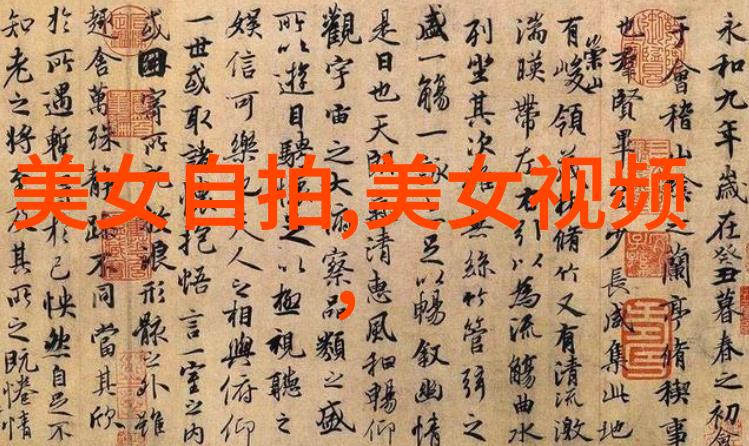 美女自拍,美女视频
,
永和九年歲在癸丑暮春之初會
于會稽山陰之蘭亭脩稧事
也羣賢畢至少長咸集此地
有崇山峻領茂林脩竹又有清流激
湍暎帶左右引以為流觴曲水
列坐其次雖無絲竹管弦之
盛一觴一詠亦足以暢叙幽情
是日也天朗氣清惠風和暢仰
觀宇宙之大俯察品類之盛
所以遊目騁懷足以極視聽之
娛信可樂也夫人之相與俯仰
一世或取諸懷抱悟言一室之內
或因寄所託放浪形骸之外雖
趣舍萬殊靜躁不同當其欣
於所遇蹔得於己怏然自足不
知老之將至及其所之既惓情